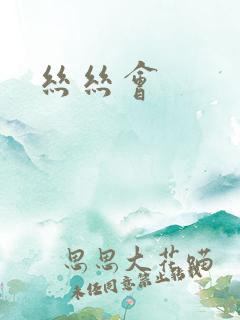 絲絲會
思思大花蹣
未經同意禁止轉載